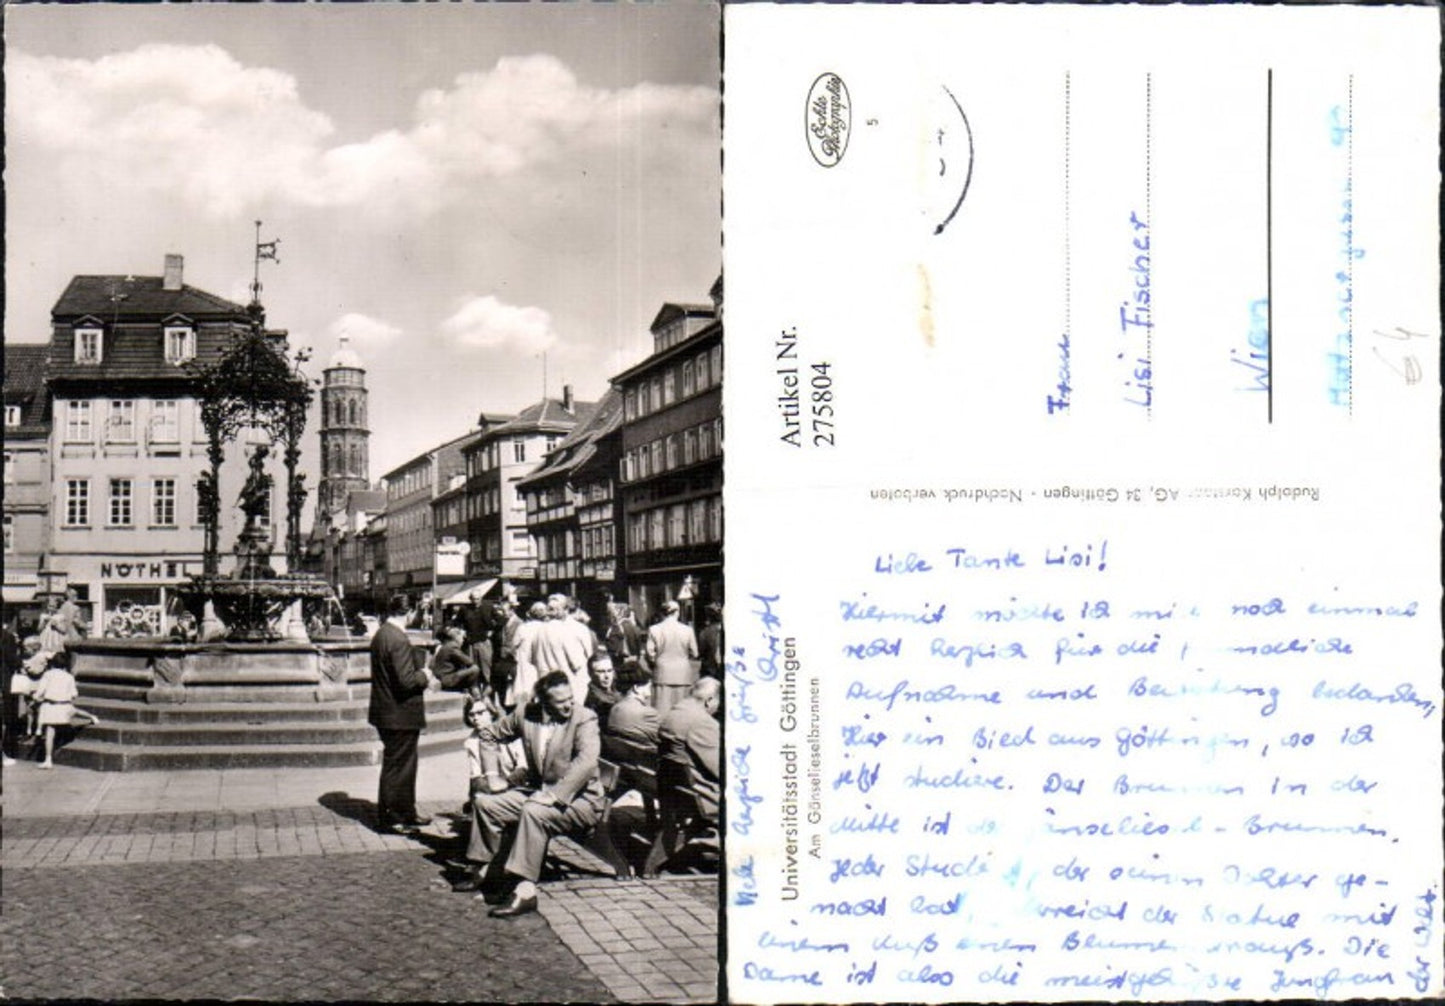 NÖTHEL
Echte
Photographie
5
Artikel Nr.
275804
Lisi Fischer
Wien
64
Rudolph Karstadt AG, 34 Göttingen - Nachdruck verboten
Universitätsstadt Göttingen
Am Gänselieselbrunnen
Liebe Tante Lisi!
Hiermit möchte ich noch einmal
recht herzlich für die
Aufnahme und bedanken,
Hier ein Bild aus Göttingen, wo ich
jetzt studiere. Der Brunnen in der
Mitte ist Gänseliesel-Brunnen.
Jeder der seinen ge-
macht hat, der Statue mit
einem Kuß einen Die
Dame ist also die meistgeküßte Jungfrau
der Welt.
herzliche Grüße